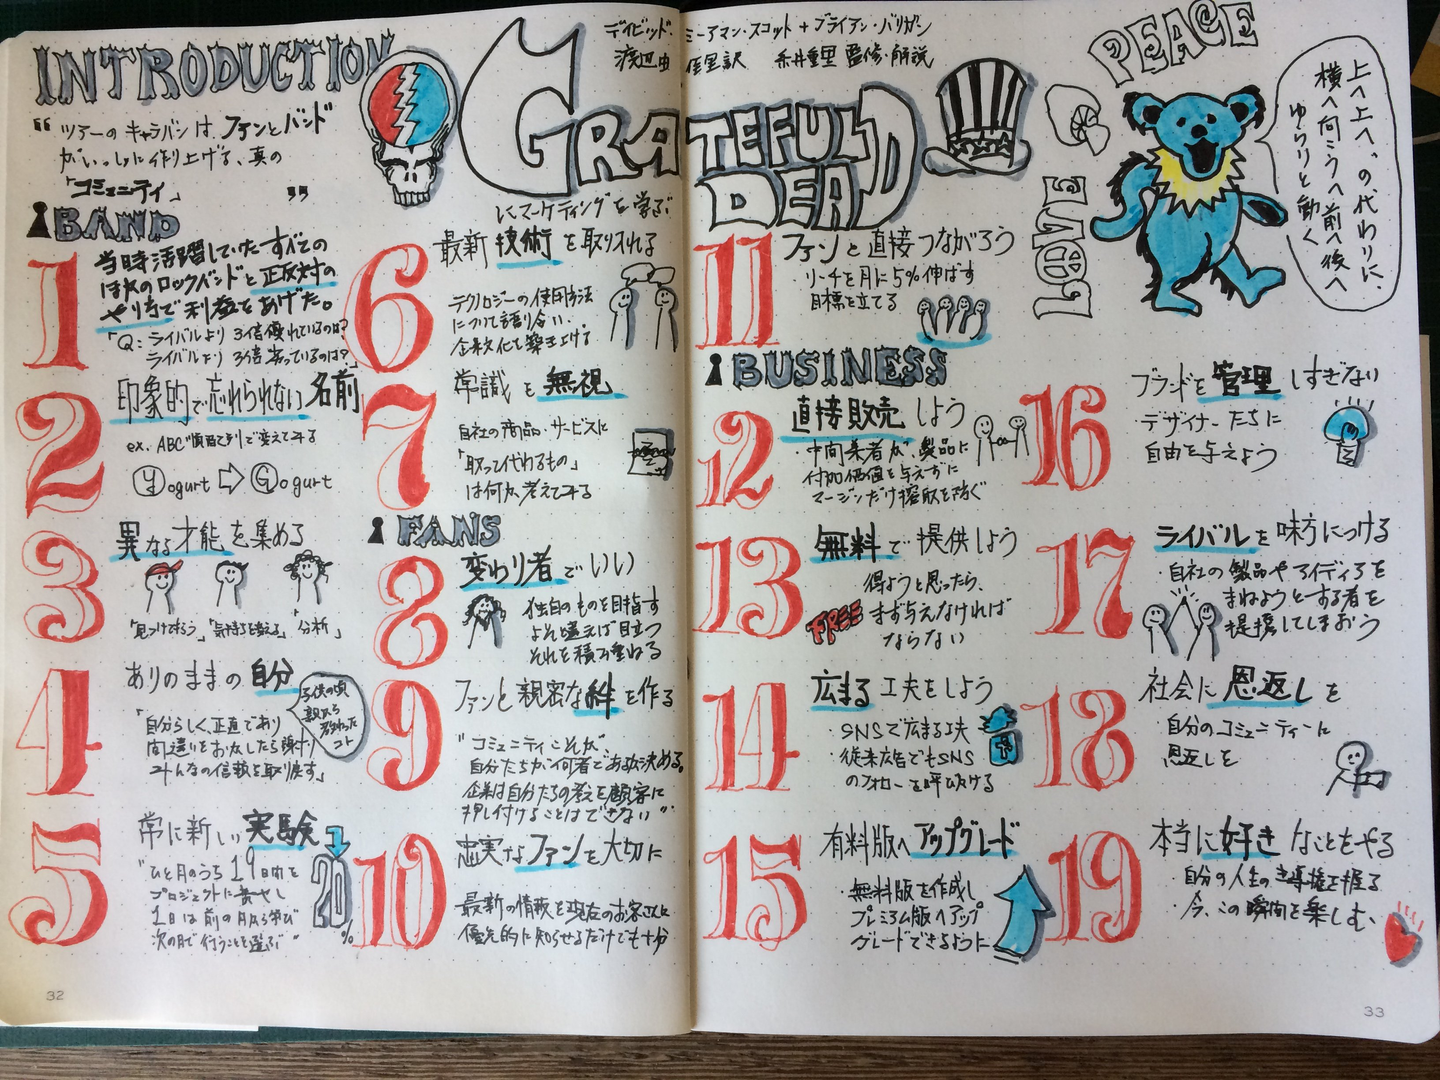 INTRODUCTION
“ツアーのキャラバンは、ファンとバンド
がいっしょに作り上げる、真の
「コミュニティ」”
デイビッド・ミーアマン・スコット+ブライアン・ハリガン
渡辺由佳里訳 糸井重里 監修・解説
GRATEFUL DEAD
にマーケティングを学ぶ
PEACE
LOVE
上へ上へ、の代わりに、
横へ向こうへ前へ後へ
ゆらりと動く
BAND
1
当時活躍していたすべての
ほかのロックバンドと正反対の
やり方で利益をあげた。
「Q:ライバルより3倍優れているのは?
ライバルより3倍劣っているのは?」
2
印象的で忘れられない名前
ex. ABC順番で変えてみる
Yogurt ⇨ Gogurt
3
異なる才能を集める
「分析」
4
ありのままの自分
「自分らしく、正直であり
間違いをおかしたら謝り
みんなの信頼を取り戻す」
子供の頃
親から
教わった
コト
5
常に新しい実験
“ひと月のうち19日間を
プロジェクトに費やし
1日は前の月から学び
次の月で行うことを選ぶ”
20%
6
最新技術を取り入れる
テクノロジーの使用方法
について語り合い、
企業文化を築き上げる
7
常識を無視
自社の商品・サービスに
「取って代わるもの」
は何か考えてみる
FANS
8
変わり者でいい
独自のものを目指す
よそと違えば目立つ
それを積み重ねる
9
ファンと親密な絆を作る
“コミュニティこそが
自分たちが何者であるか決める。
企業は自分たちの考えを顧客に
押し付けることはできない”
10
忠実なファンを大切に
最新の情報を現在のお客さんに
優先的に知らせるだけでも十分
11
ファンと直接つながろう
・リーチを月に5%伸ばす
目標を立てる
BUSINESS
12
直接販売しよう
・中間業者が、製品に
付加価値を与えずに
マージンだけ搾取を防ぐ
13
無料で提供しよう
得ようと思ったら、
まず与えなければ
ならない
FREE
14
広まる工夫をしよう
・SNSで広まる工夫
・従来広告でもSNS
のフォローを呼びかける
15
有料版へアップグレード
・無料版を作成し
プレミアム版へアップ
グレードできるように
16
ブランドを管理しすぎない
・デザイナーたちに
自由を与えよう
17
ライバルを味方につける
・自社の製品やアイディアを
まねようとする者を
提携してしまおう
18
社会に恩返しを
・自分のコミュニティーに
恩返しを
19
本当に好きなことをやる
・自分の人生の主導権を握る
・今、この瞬間を楽しむ
32
33